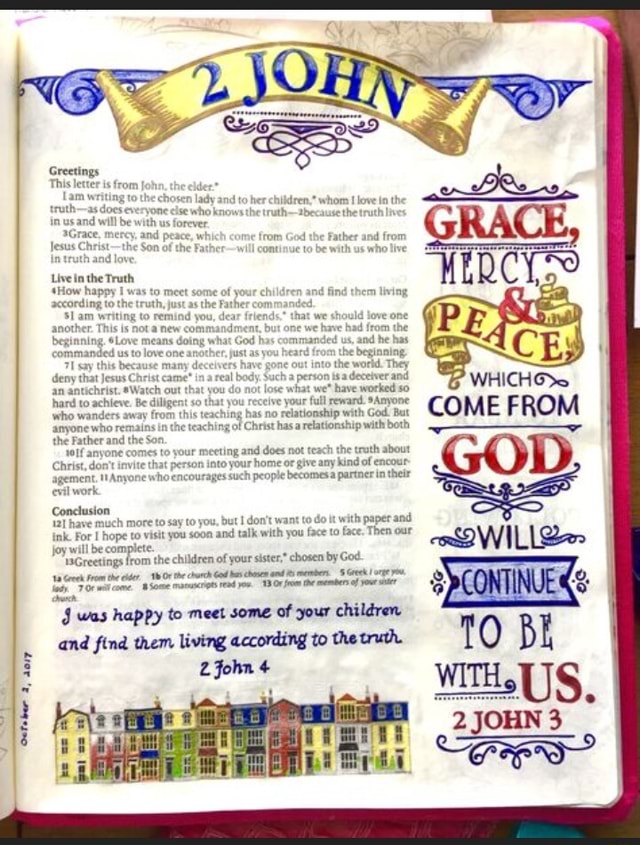 2 JOHN
Greetings
This letter is from John, the elder.*
I am writing to the chosen lady and to her children,* whom I love in the
truth—as does everyone else who knows the truth—2because the truth lives
in us and will be with us forever.
3Grace, mercy, and peace, which come from God the Father and from
Jesus Christ—the Son of the Father—will continue to be with us who live
in truth and love.
Live in the Truth
4How happy I was to meet some of your children and find them living
according to the truth, just as the Father commanded.
5I am writing to remind you, dear friends,* that we should love one
another. This is not a new commandment, but one we have had from the
beginning. 6Love means doing what God has commanded us, and he has
commanded us to love one another, just as you heard from the beginning.
7I say this because many deceivers have gone out into the world. They
deny that Jesus Christ came* in a real body. Such a person is a deceiver and
an antichrist. 8Watch out that you do not lose what we* have worked so
hard to achieve. Be diligent so that you receive your full reward. 9Anyone
who wanders away from this teaching has no relationship with God. But
anyone who remains in the teaching of Christ has a relationship with both
the Father and the Son.
10If anyone comes to your meeting and does not teach the truth about
Christ, don't invite that person into your home or give any kind of encour-
agement. 11Anyone who encourages such people becomes a partner in their
evil work.
Conclusion
12I have much more to say to you, but I don't want to do it with paper and
ink. For I hope to visit you soon and talk with you face to face. Then our
joy will be complete.
13Greetings from the children of your sister,* chosen by God.
1a Greek From the elder. 1b Or the church God has chosen and its members. 5 Greek I urge you,
lady. 7 Or will come. 8 Some manuscripts read you. 13 Or from the members of your sister
church.
I was happy to meet some of your children
and find them living according to the truth
2 John 4
October 2, 2017
GRACE,
MERCY,
&
PEACE,
WHICH
COME FROM
GOD
WILL
CONTINUE
TO BE
WITH US.
2 JOHN 3